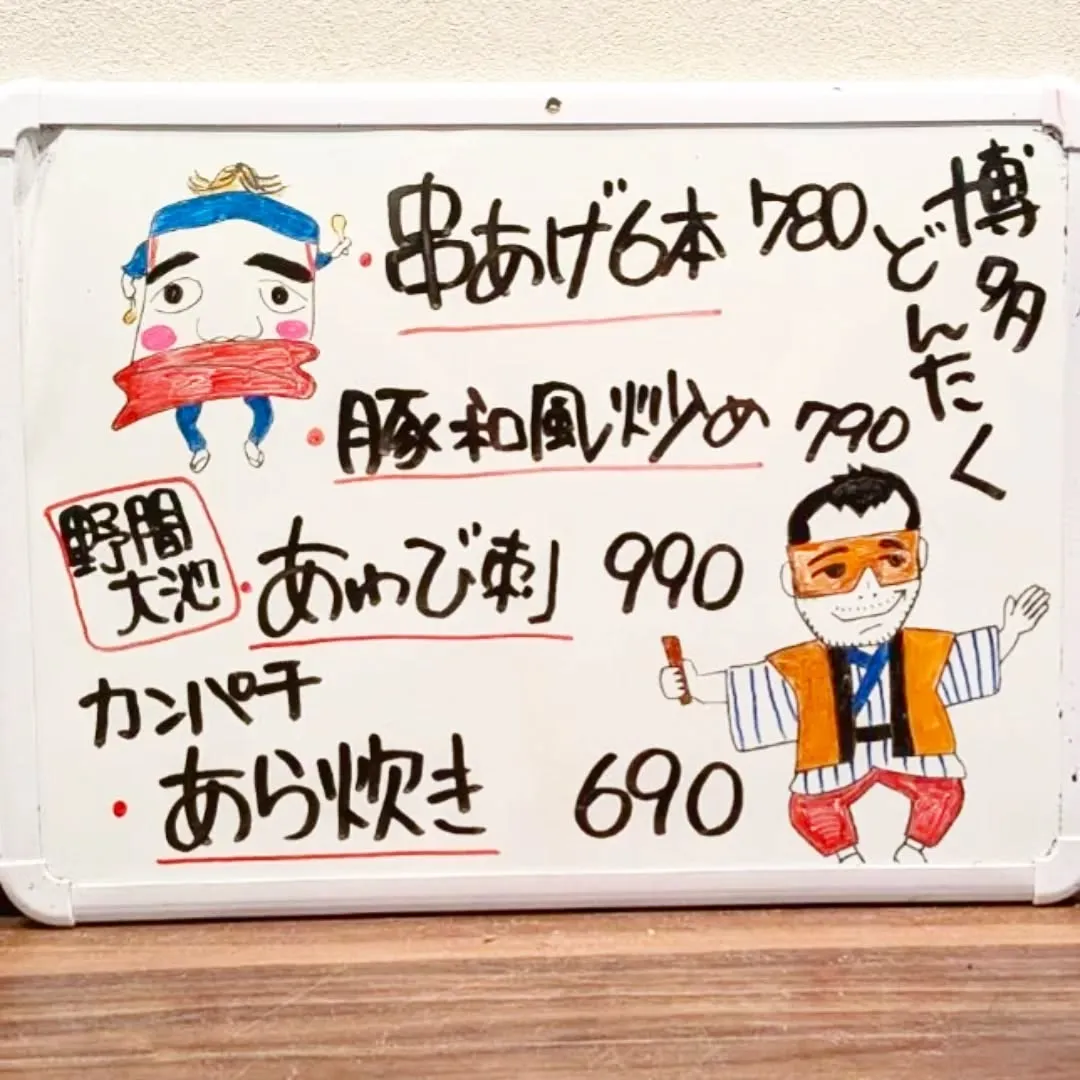 博多
どんたく
串あげ6本 780
豚和風炒め 790
野間
大池
あわび刺 990
カンパチ
あら炊き 690